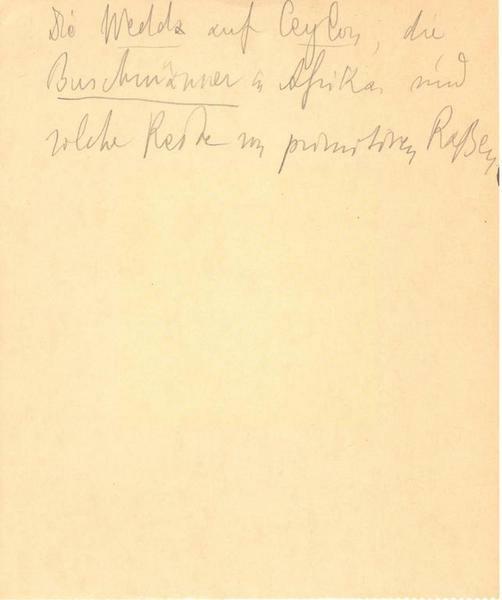 Die Wedda auf Ceylon, die
Buschmänner in Afrika sind
solche Reste von primitiven Raßen